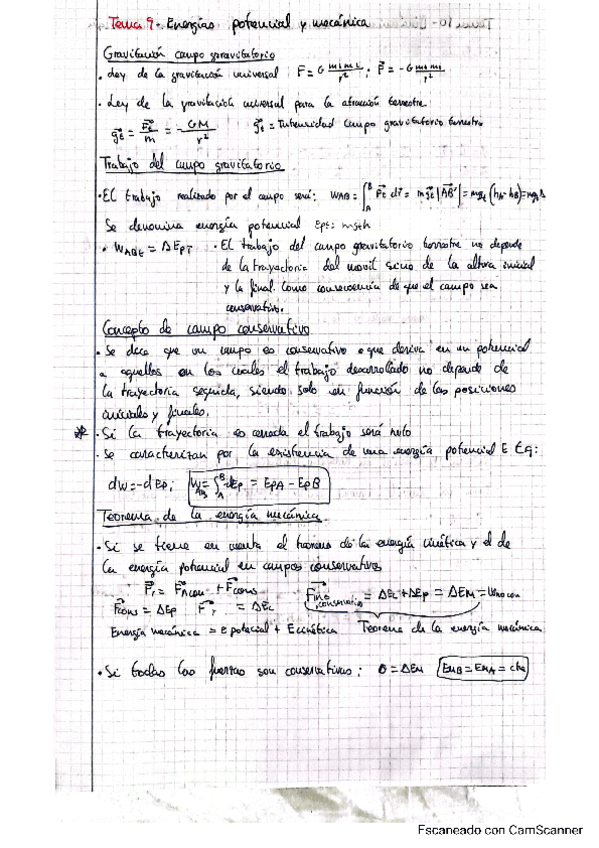 Tema 9- Energías potencial y mecánica
Gravitación campo gravitatorio
· Ley de la gravitación universal F = G m₁m₂/r² ; F⃗ = -G m₁m₂/r²
· Ley de la gravitación universal para la atracción terrestre
g⃗t = F⃗t/m = -GM/r² g⃗t = Intensidad campo gravitatorio terrestre
Trabajo del campo gravitatorio
· El trabajo realizado por el campo será: WAB = ∫AB F⃗t dr⃗ = mg⃗t|AB'| = mgt (hA - hB) =
Se denomina energía potencial Ept = mgth
· WABt = ΔEpT · El trabajo del campo gravitatorio terrestre no depende
de la trayectoria del movil sino de la altura inicial
y la final. Como consecuencia de que el campo sea
conservativo.
Concepto de campo conservativo
· Se dice que un campo es conservativo o que deriva en un potencial
a aquellos en los cuales el trabajo desarrollado no depende de
la trayectoria seguida, siendo solo en función de las posiciones
iniciales y finales.
* · Si la trayectoria es cerrada el trabajo será nulo
· Se caracterizan por la existencia de una energía potencial E tq:
dW = -dEp; W AB = ∫AB dEp = EpA - EpB
Teorema de la energía mecánica
· Si se tiene en cuenta el teorema de la energía cinética y el de
la energía potencial en campos conservativos
F⃗r = F⃗ncon + F⃗cons F⃗no conservativa = ΔEc + ΔEp = ΔEM = Wno con
F⃗cons = ΔEp F⃗r = ΔEc
Energía mecánica = E potecial + E cinética Teorema de la energía mecánica
· Si todas las fuerzas son conservativas: 0 = ΔEM EMB = EMA = cte
Escaneado con CamScanner